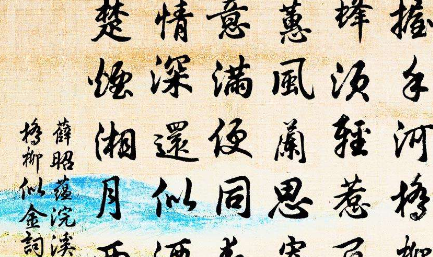 握手河橋柳
蜂須輕惹
蕙風蘭思
意滿便同
情深還似
楚煙湘月
薛昭蘊浣溪
橋柳似金詞